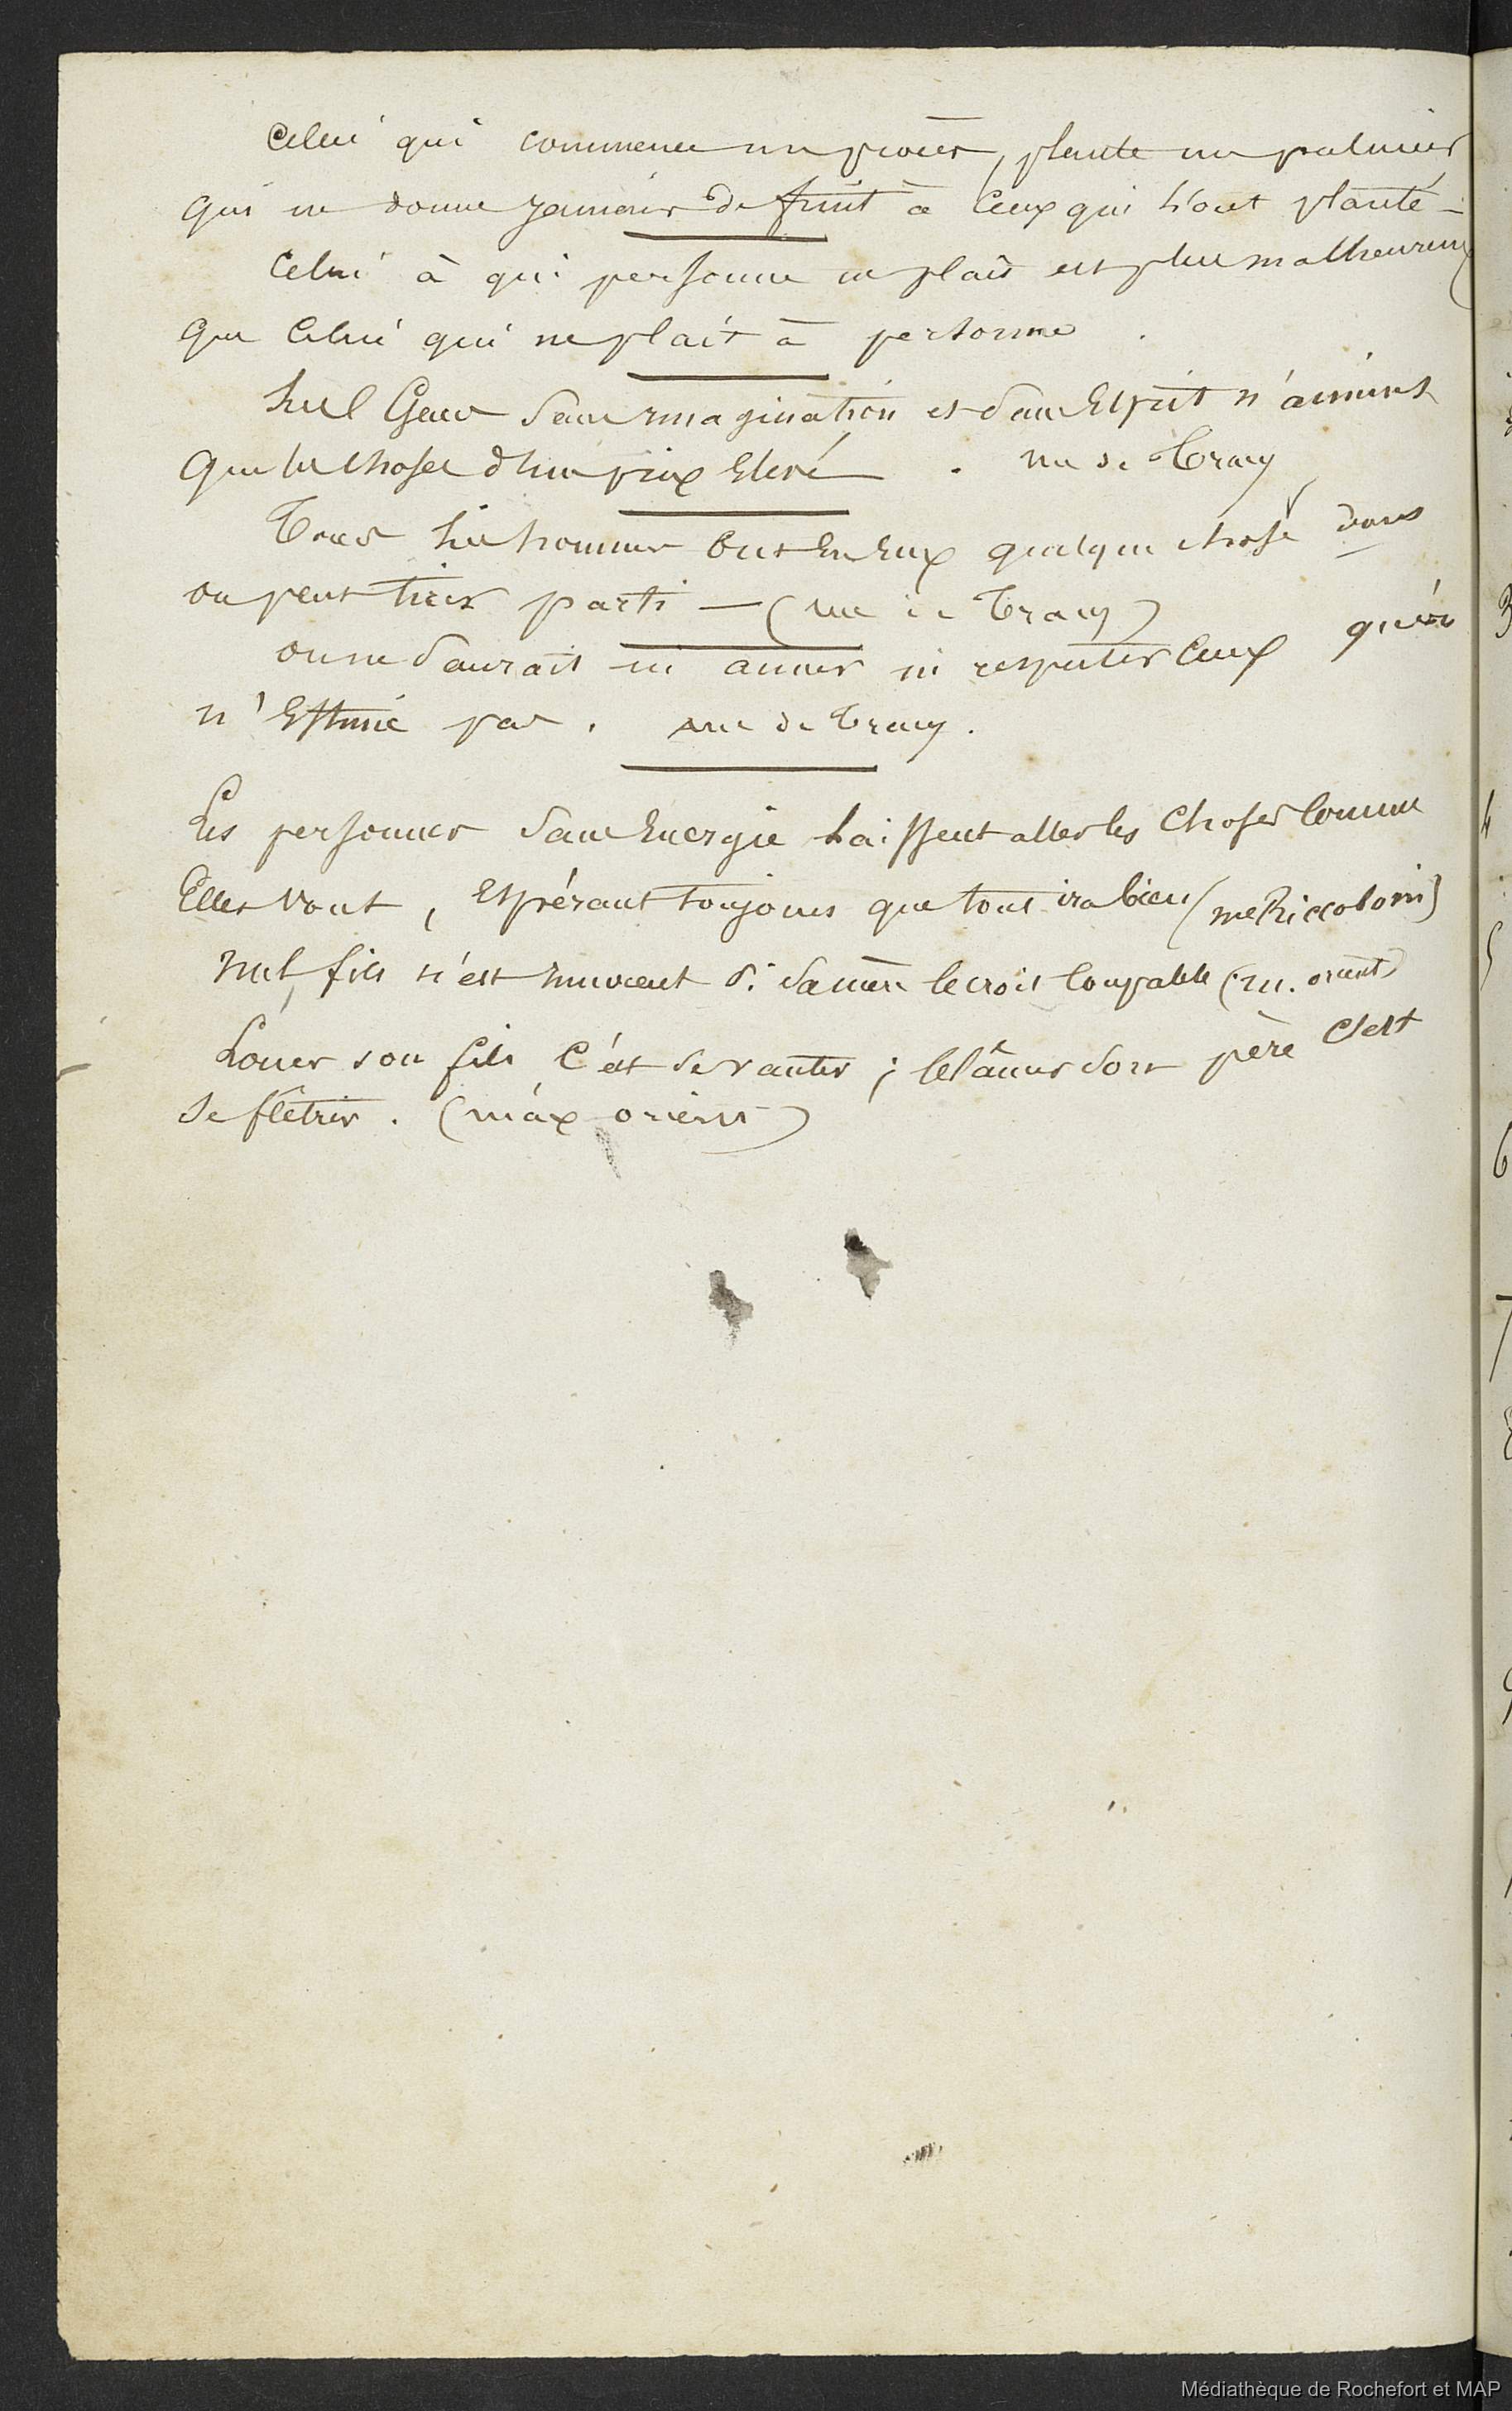 Celui qui commence un procès, plante un palmier
qui ne donne jamais de fruit à ceux qui l'ont planté -
Celui à qui personne ne plait est plus malheureux
que celui qui ne plait à personne .
Les Gens sans imagination et sans Esprit n'aiment
que les choses d'un prix Elevé . Me de Tracy
Tous les hommes ont En Eux quelque chose dont
on peut tirer parti — (Me de Tracy)
on ne saurait ni aimer ni respecter ceux qu'on
n'Estime pas . Me de Tracy .
Les personnes sans Energie laissent aller les choses comme
Elles vont , Espérant toujours que tout ira bien (Me Riccoboni)
Nul fils n'est innocent si sa mère le croit coupable (m. orient)
Louer son fils c'est se vanter ; blâmer son père c'est
se flétrir . (max orient)
Médiathèque de Rochefort et MAP